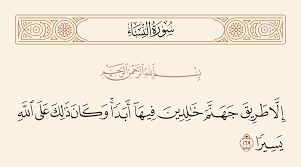 سُورَةُ النِّسَاءِ
بِسْمِ اللَّهِ الرَّحْمَٰنِ الرَّحِيمِ
إِلَّا طَرِيقَ جَهَنَّمَ خَالِدِينَ فِيهَا أَبَدًا ۚ وَكَانَ ذَٰلِكَ عَلَى اللَّهِ
يَسِيرًا ١٦٩